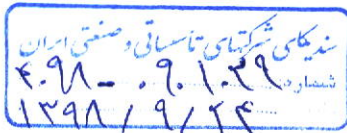 سندیکای شرکتهای تأسیساتی و صنعتی ایران
شماره ۴۰۹۸-۰۹۰۱۰۳۹
۱۳۹۸/۹/۲۴